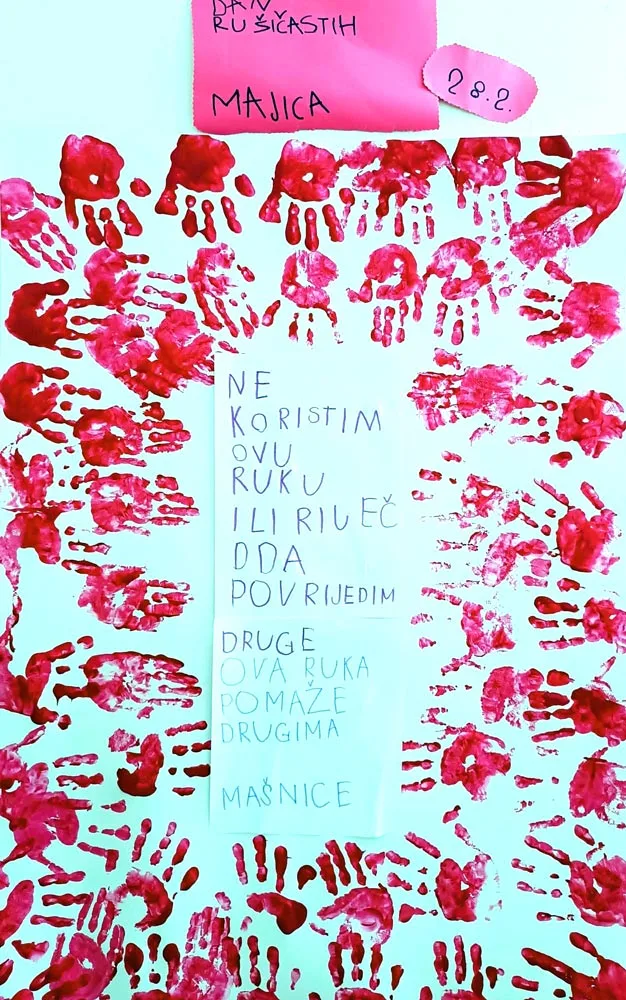 DAN
RUŠIČASTIH
MAJICA
28.2.
NE
KORISTIM
OVU
RUKU
ILI RIUEČ
DDA
POVRIJEDIM
DRUGE
OVA RUKA
POMAŽE
DRUGIMA
MAŠNICE